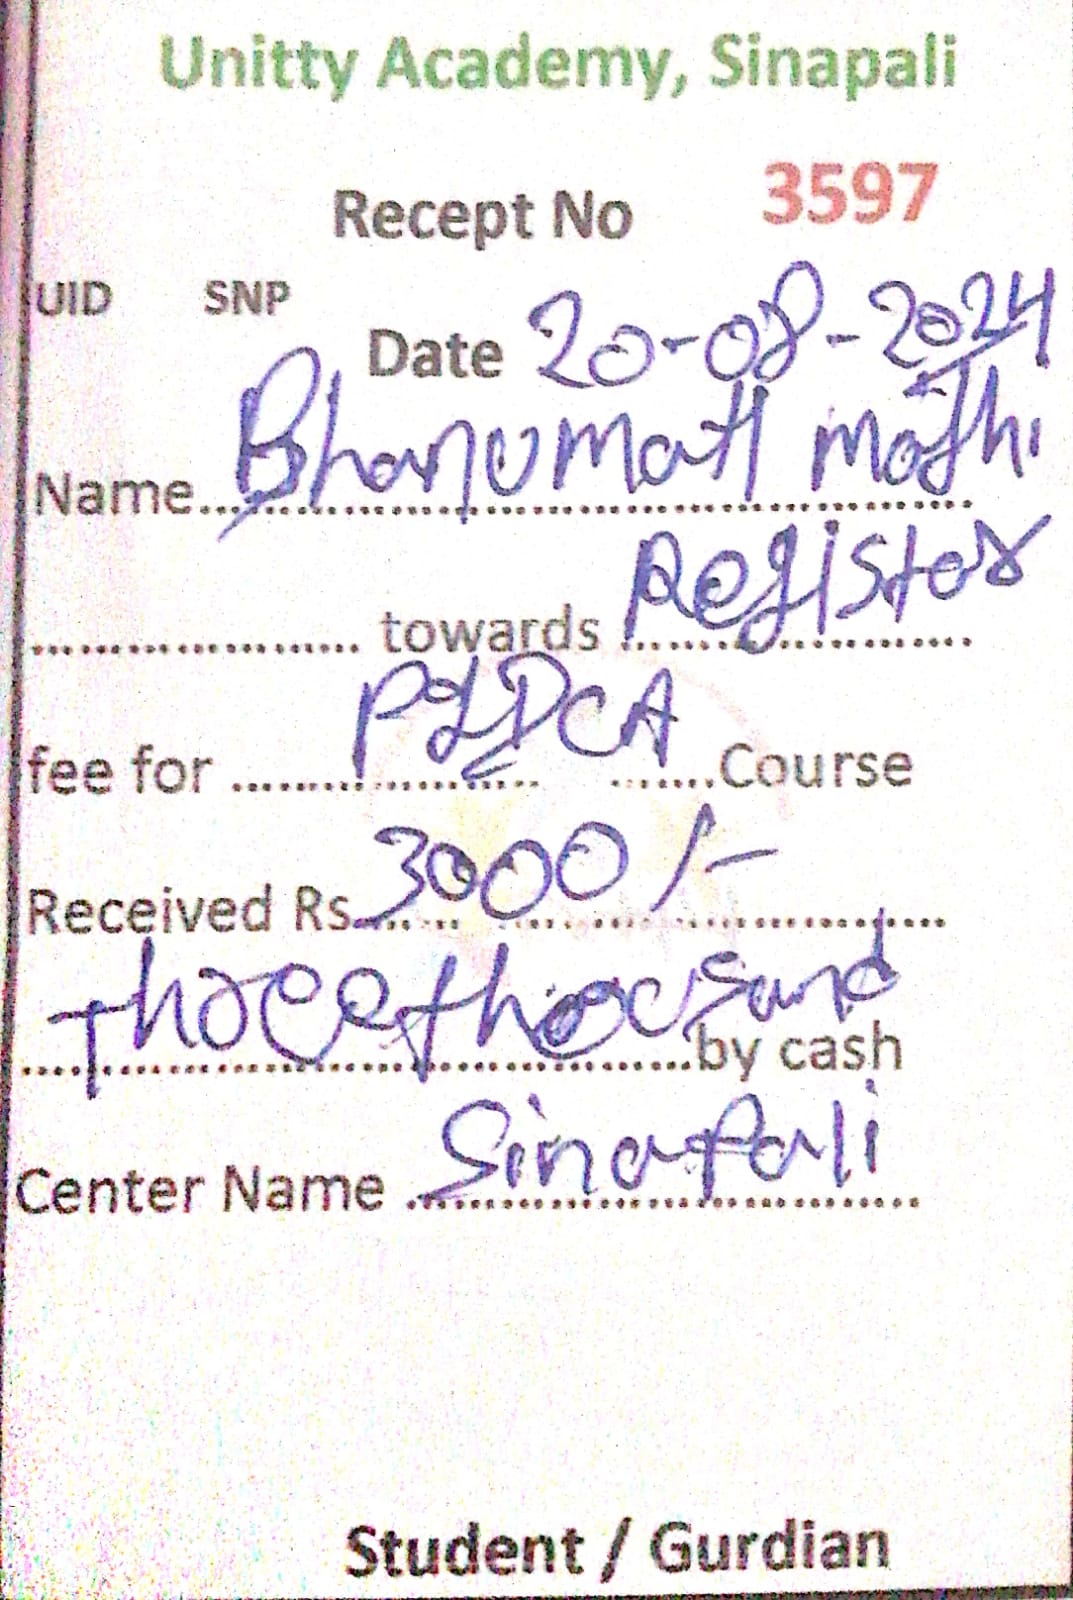 Unitty Academy, Sinapali
Recept No 3597
UID SNP
Date 20-08-2024
Name.. Bhanumati Majhi
towards Registor
fee for PGDCA Course
Received Rs. 3000/-
three thousand by cash
Center Name Sinapali
Student / Gurdian